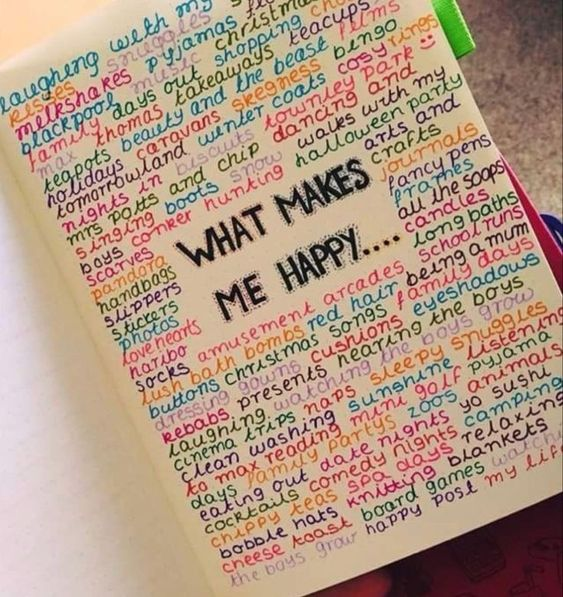 laughing with my
kisses snuggles
milkshakes pyjamas
blackpool music Christmas
family days out shopping
max thomas takeaways teacups
teapots beauty and the beast films
holidays caravans skegness bingo
tomorrowland winter coats cosy rings
nights in biscuits townley park
mrs potts and chip dancing and
singing boots snow walks with my
boys conker hunting halloween party
scarves arts and
pandora crafts
handbags journals
slippers fancy pens
stickers frames
photos all the soaps
love hearts candles
haribo long baths
WHAT MAKES
ME HAPPY....
socks amusement arcades school runs
lush bath bombs red hair being a mum
buttons christmas songs family days
dressing gowns cushions eyeshadows
kebabs presents hearing the boys
laughing watching the boys grow
cinema trips naps sleepy snuggles
clean washing sunshine listening
to max reading mini golf pyjama
days family partys zoos animals
eating out date nights yo sushi
cocktails comedy nights camping
chippy teas spa days relaxing
bobble hats knitting blankets
cheese toast board games watch
the boys grow happy post my life